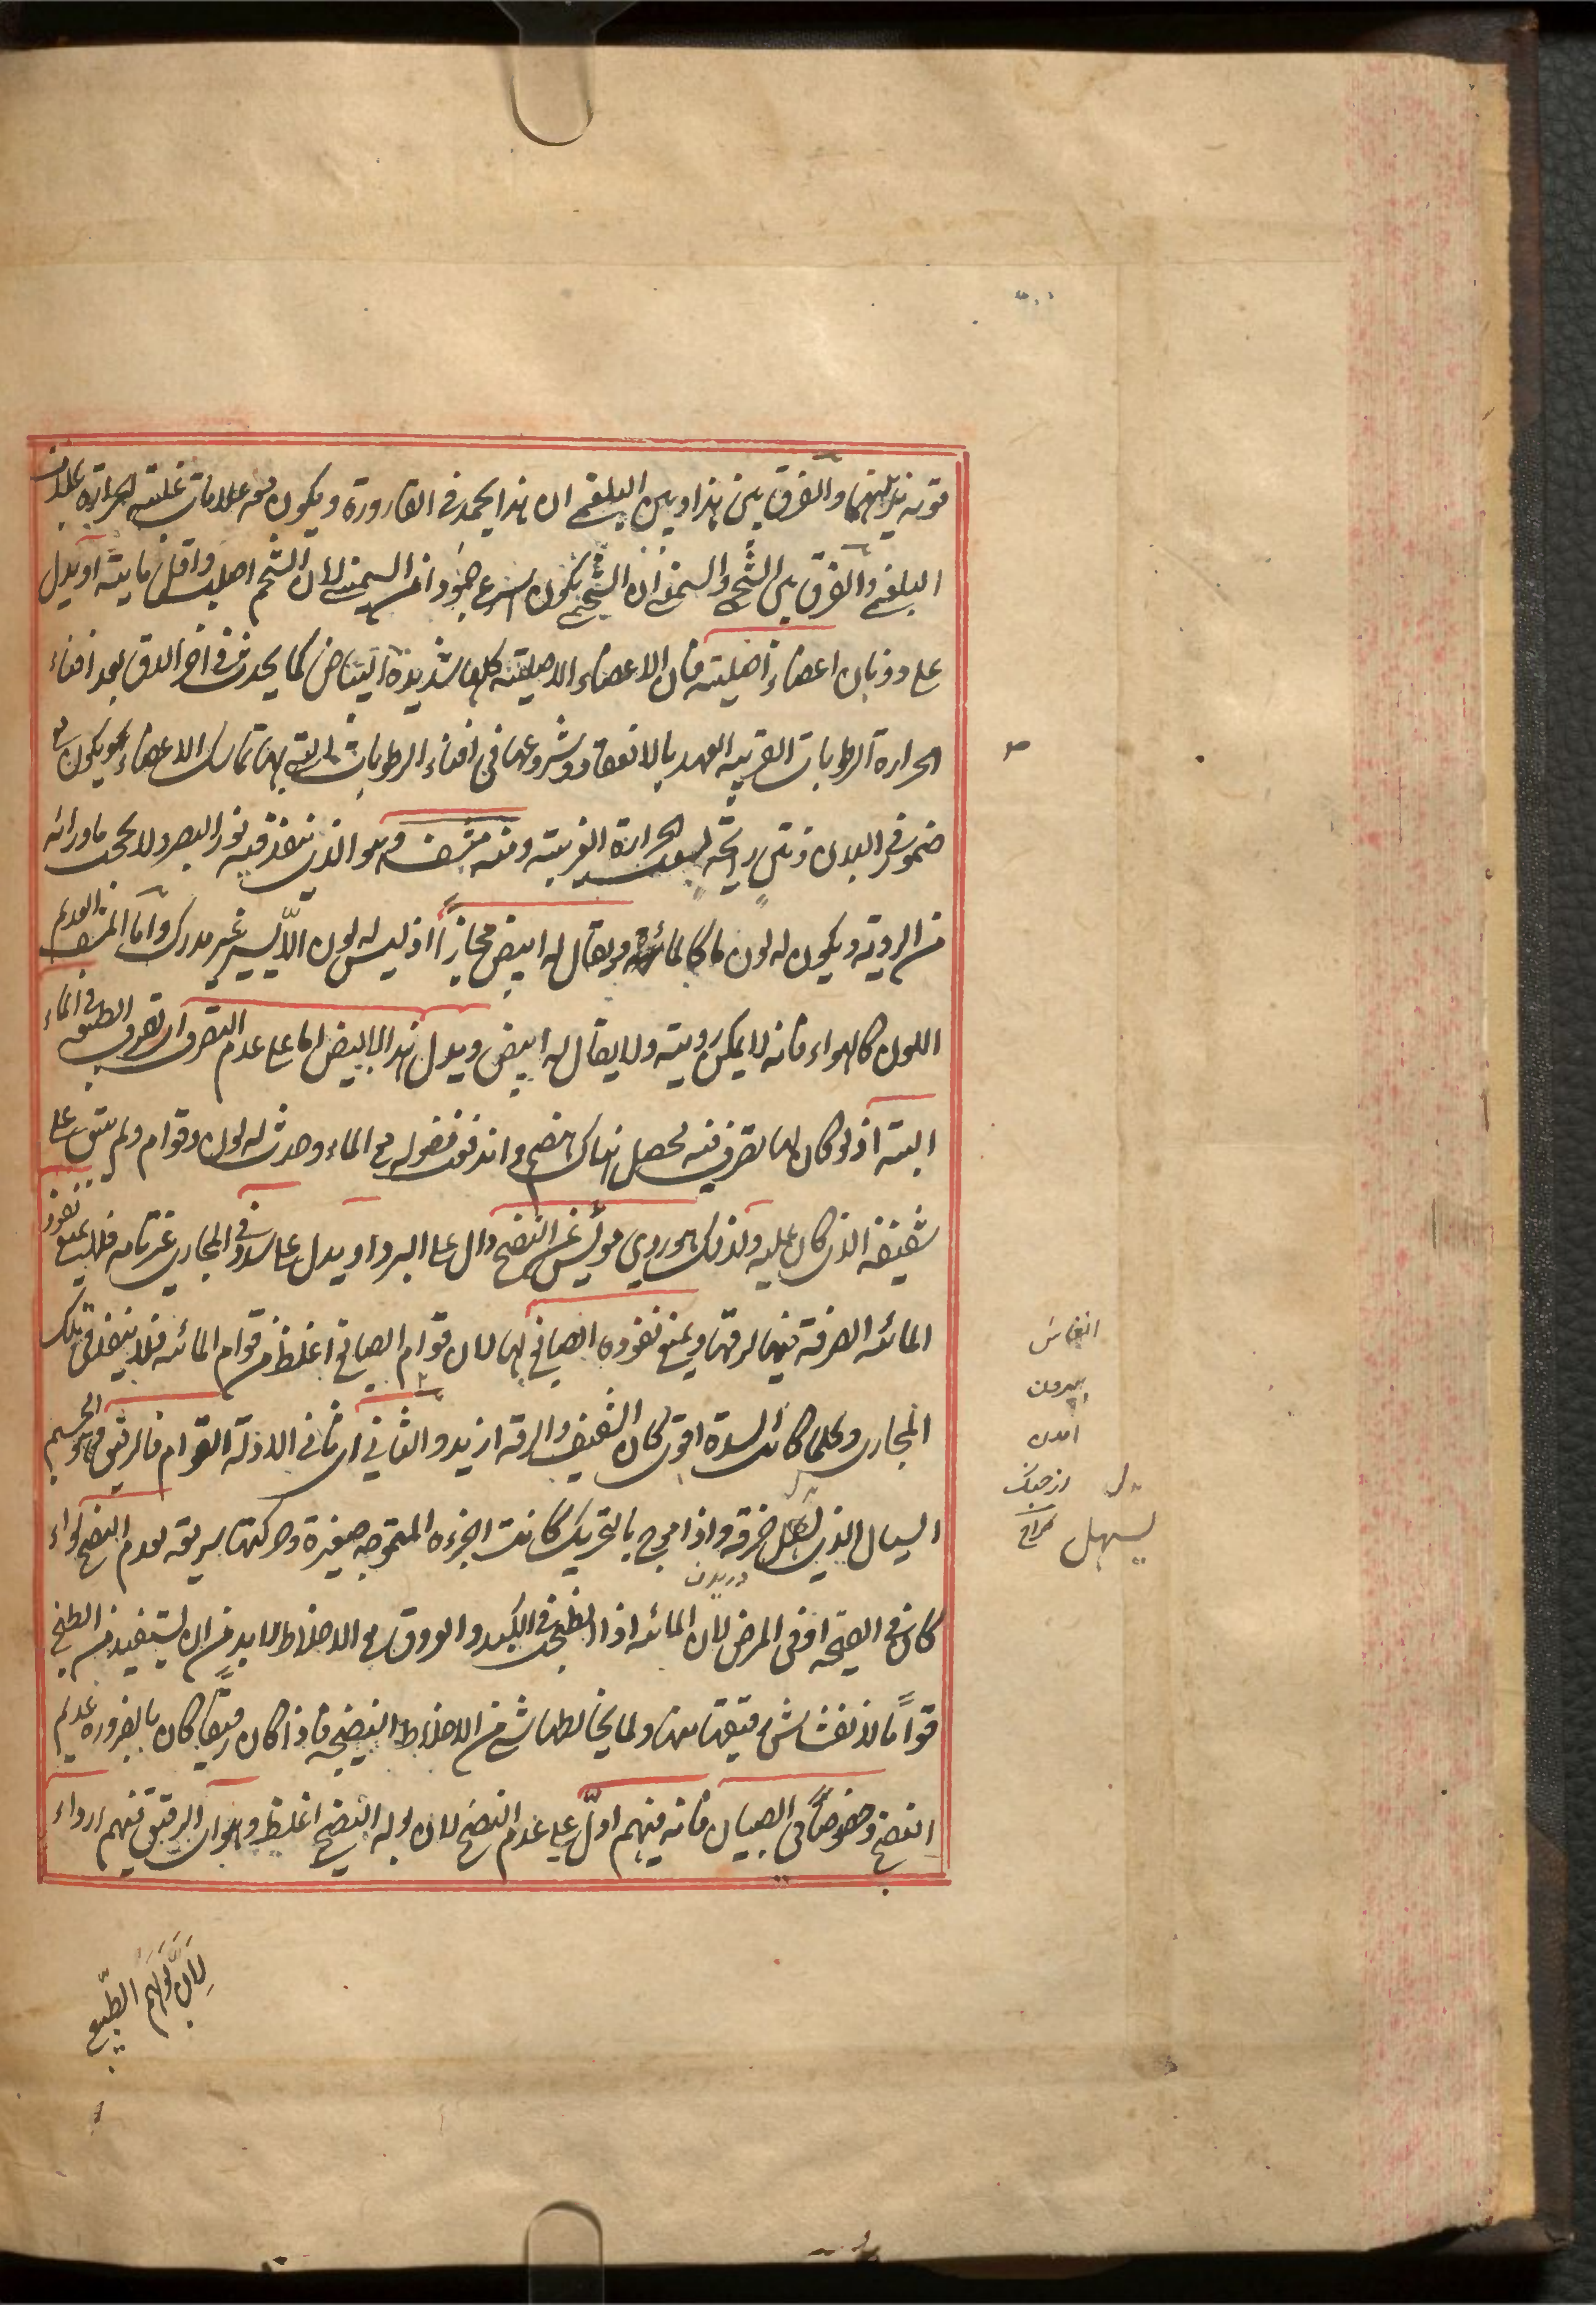 قوته يذيبهما والفرق بين هذا وبين البلغمى ان هذا يجمد فى القارورة ويكون معه علامات غلبته الحرارة بخلاف
البلغمى والفرق بين الشحمى والسمنى ان الشحمى يكون اسرع جمودا من السمنى لان الشحم اصلب واقل مايته او يدل
على ذوبان اعضاء اصليته فان الاعضاء الاصليته كلها شديدة البياض كما يحدث فى اخر الدق بعد افناء
الحرارة الرطوبات القريبه العهد بالانعقاد وشروعها فى افناء الرطوبات التى بها تماسك الاعضاء ويكون مع
ضمور فى البدن ونتن رايحته الحرارة الغريبته ومنه مشف وهو الذى ينفذ فيه نور البصر ولا يحجب ماورائه
من الرويته ويكون له لون ما كالمائه ويقال له ابيض مجازاً اذ ليس له لون الّا يسير غير مدرك واما المشف العديم
اللون كالهواء فانه لا يمكن رويته ولا يقال له ابيض ويدل هذا البابيض اما على عدم التصرف اى تصرف الطبيعه فى الماء
البتة اذ لو كان لها تصرف فيه لحصل هناك هضم واندفعت فضوله مع الماء وحدث له لون وقوام ولم يبق على
شفيفه الذى كان عليه ولذلك هو ردى مويس عن النضج دال على البرد او يدل على سدد فى المجارى غير تامه فلا يمنع نفوذ
المائه الصرفة فيها لرقتها ويمنع نفوذه الصابغ لها لان قوام الصابغ اغلظ من قوام المائه فلا ينفذ فى تلك
المجارى وكلما كانت السدة اقوى كان الشفيف والرقه ازيد والثانى اى ثانى الادلة القوام فالرقيق وهو الجسم
السيال الذى يسهل خرقه واذا موج بالتحريك كانت اجزءه المتموجه صغيرة وحركتها سريعه لعدم النضج سواء
دريدن
كان فى الصحه او فى المرض لان المائه اذا انطبخت فى الكبد والعروق مع الاخلاط لا بد من ان يستفيد من الطبخ
قواماً لانفشاش رقيقها منها ولما يخالطها شى من الاخلاط النضيجه فاذا كان رقيقاً كان بالضرورة عديم
النضج وخصوصاً فى الصبيان فانه فيهم ادلّ على عدم النضج لان بوله النضيج اغلظ وهو اى الرقيق فيهم ارداء
لان بولهم الطبيعى
بيرون
امدن
يسهل